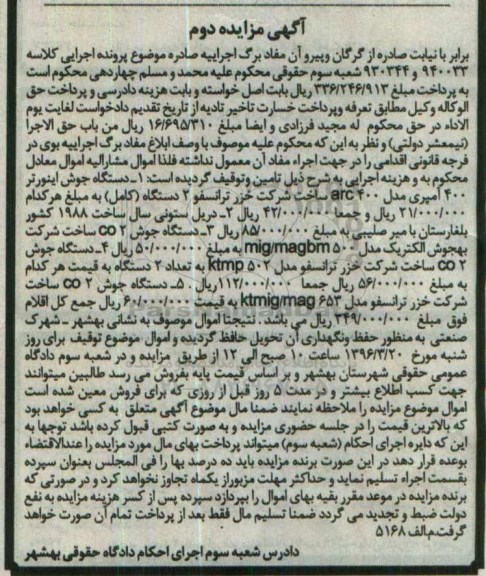 آگهی مزایده دوم
برابر با نیابت صادره از گرگان و پیرو آن مفاد برگ اجراییه صادره موضوع پرونده اجرایی کلاسه
۹۴۰۰۳۳ و ۹۳۰۳۴۴ شعبه سوم حقوقی محکوم علیه محمد و مسلم چهاردهی محکوم است
به پرداخت مبلغ ۳۳۶/۲۴۶/۹۱۳ ریال بابت اصل خواسته و بابت هزینه دادرسی و پرداخت حق
الوکاله وکیل مطابق تعرفه وپرداخت خسارت تاخیر تادیه از تاریخ تقدیم دادخواست لغایت یوم
الاداء در حق محکوم له مجید فرزادی و ایضا مبلغ ۱۶/۶۹۵/۳۱۰ ریال من باب حق الاجرا
(نیمعشر دولتی) و نظر به این که محکوم علیه موصوف با وصف ابلاغ مفاد برگ اجراییه بوی در
فرجه قانونی اقدامی را در جهت اجراء مفاد آن معمول نداشته فلذا اموال مشارالیه اموال معادل
محکوم به و هزینه اجرایی به شرح ذیل تامین وتوقیف گردیده است: ۱ـ دستگاه جوش اینورتر
۴۰۰ آمپری مدل arc ۴۰۰ ساخت شرکت خزر ترانسفو ۲ دستگاه (کامل) به مبلغ هرکدام
۲۱/۰۰۰/۰۰۰ ریال و جمعا ۴۲/۰۰۰/۰۰۰ ریال ۲ـ دریل ستونی سال ساخت ۱۹۸۸ کشور
بلغارستان با میر صلیبی به مبلغ ۸۵/۰۰۰/۰۰۰ ریال ۳ـ دستگاه جوش co ۲ ساخت شرکت
بهجوش الکتریک مدل mig/magbm ۵۰۰ به مبلغ ۵۰/۰۰۰/۰۰۰ ریال ۴ـ دستگاه جوش
co ۲ ساخت شرکت خزر ترانسفو مدل ktmp ۵۰۲ به تعداد ۲ دستگاه به قیمت هر کدام
به مبلغ ۵۶/۰۰۰/۰۰۰ ریال جمعا ۱۱۲/۰۰۰/۰۰۰ ریال ۵ـ دستگاه جوش co ۲ ساخت
شرکت خزر ترانسفو مدل ktmig/mag ۶۵۳ به قیمت ۶۰/۰۰۰/۰۰۰ ریال جمع کل اقلام
فوق مبلغ ۳۴۹/۰۰۰/۰۰۰ ریال می باشد. نتیجتا اموال موصوف به نشانی بهشهر ـ شهرک
صنعتی به منظور حفظ ونگهداری آن تحویل حافظ گردیده و اموال موضوع توقیف برای روز
شنبه مورخ ۱۳۹۶/۳/۲۰ ساعت ۱۰ صبح الی ۱۲ از طریق مزایده و در شعبه سوم دادگاه
عمومی حقوقی شهرستان بهشهر و بر اساس قیمت پایه بفروش می رسد طالبین میتوانند
جهت کسب اطلاع بیشتر و در مدت ۵ روز قبل از روزی که برای فروش معین شده است
اموال موضوع مزایده را ملاحظه نمایند ضمنا مال موضوع آگهی متعلق به کسی خواهد بود
که بالاترین قیمت را در جلسه حضوری مزایده و به صورت کتبی قبول کرده باشد توجها به
این که دایره اجرای احکام (شعبه سوم) میتواند پرداخت بهای مال مورد مزایده را عندالاقتضاء
بوعده قرار دهد در این صورت برنده مزایده باید ده درصد بها را فی المجلس بعنوان سپرده
بقسمت اجراء تسلیم نماید و حداکثر مهلت مزبور از یکماه تجاوز نخواهد کرد و در صورتی که
برنده مزایده در موعد مقرر بقیه بهای اموال را بپردازد سپرده پس از کسر هزینه مزایده به نفع
دولت ضبط و تجدید می گردد ضمنا تسلیم مال فقط بعد از پرداخت تمام آن صورت خواهد
گرفت.م.الف ۵۱۶۸
دادرس شعبه سوم اجرای احکام دادگاه حقوقی بهشهر